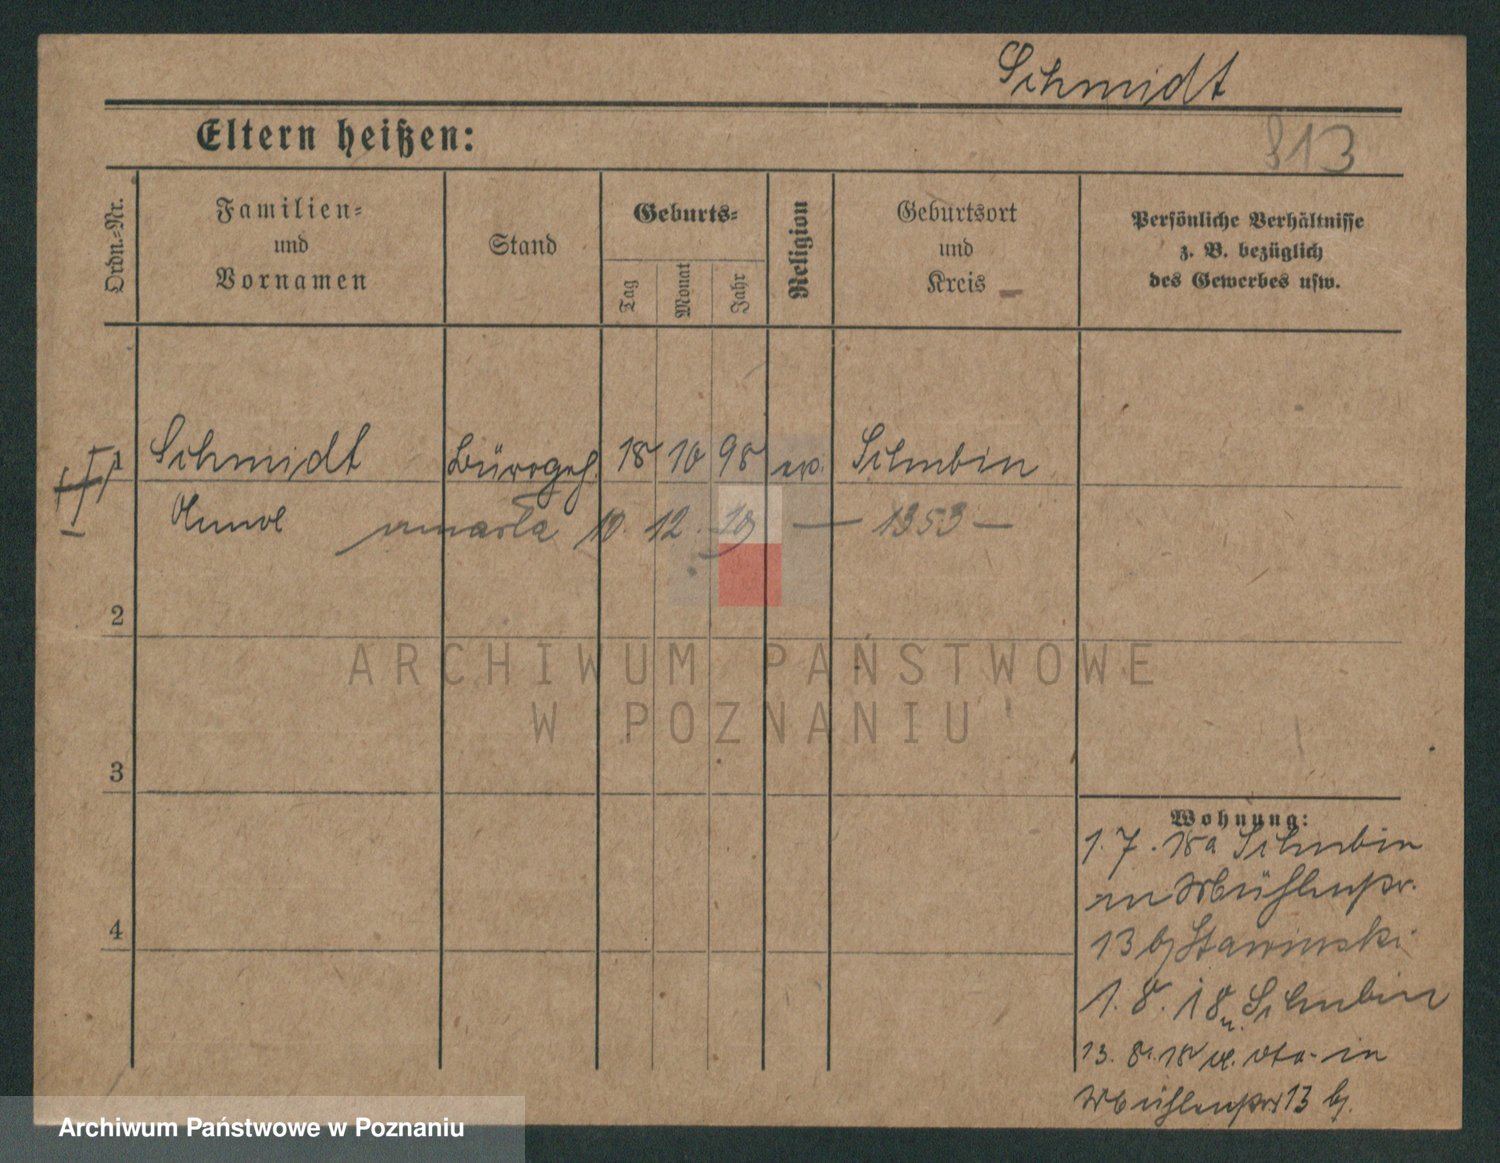 Schmidt
Eltern heißen:
813
Ordn.-Nr.
Familien-
und
Vornamen
Stand
Geburts-
Tag
Monat
Jahr
Religion
Geburtsort
und
Kreis
Persönliche Verhältnisse
z. B. bezüglich
des Gewerbes usw.
1 Schmidt Bürogeh. 18 10 98 ev. Schubin
zmarła 10. 12. 19 — 1353 —
2
ARCHIWUM PAŃSTWOWE
W POZNANIU
3
Wohnung:
1. 7. 18 a Schubin
n Mühlenstr.
13 bj Stawinski
1. 8. 18 n. Schubin
4
13. 8. 18 in
Mühlenstr 13 bj.
Archiwum Państwowe w Poznaniu